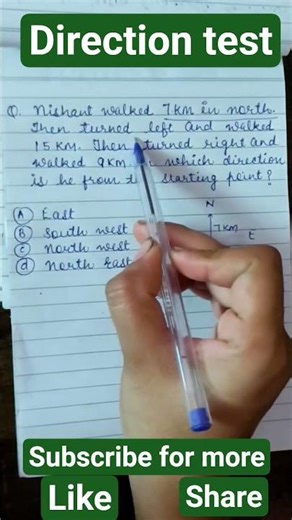 Direction test
Q. Nishant walked 7km in north.
Then turned left and walked
15 KM. Then turned right and
walked 9KM. In which direction
is he from the starting point?
(A) East
(B) South west
(C) North west
(d) North East
N
7 KM
E
Subscribe for more
Like
Share